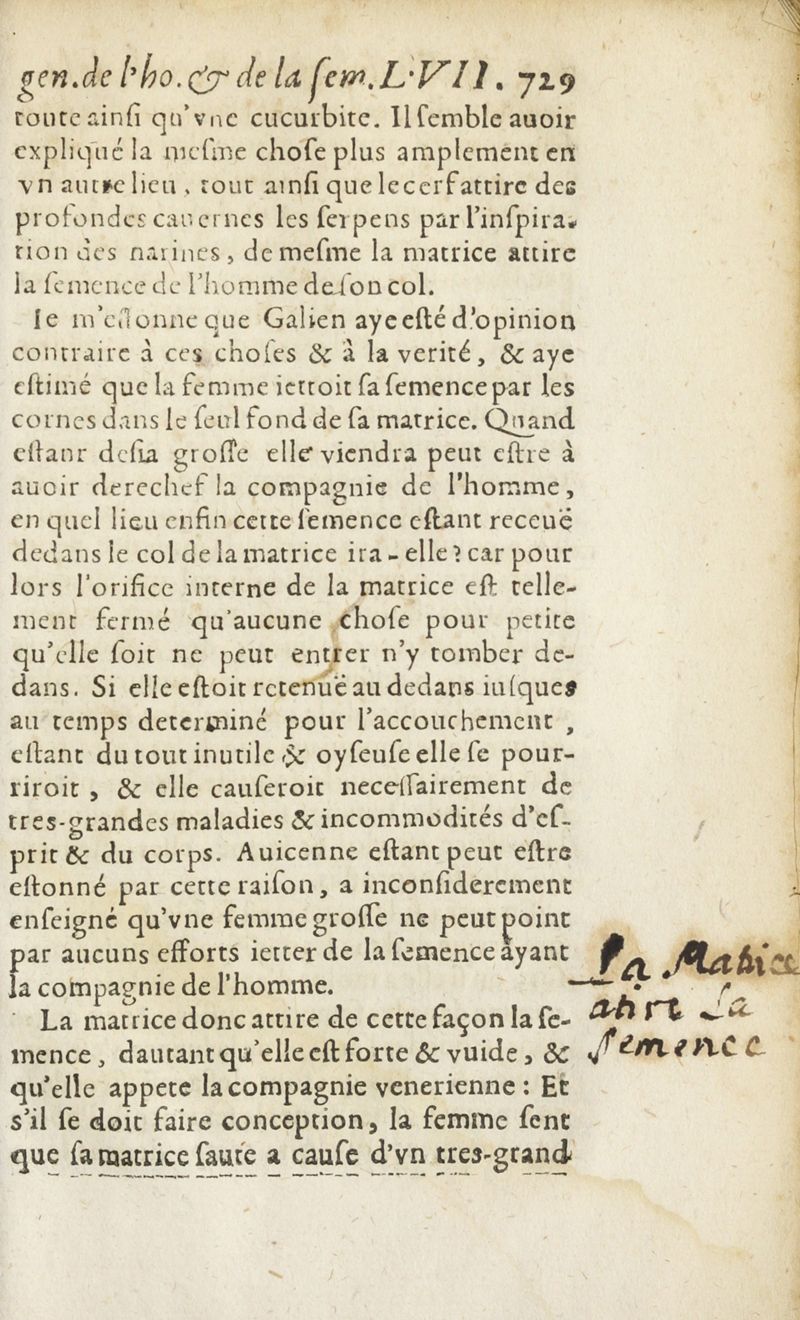 gen. de l'ho. & de la fem. L. VII. 729
toute ainſi qu'vne cucurbite. Il ſemble auoir
expliqué la meſme choſe plus amplement en
vn autre lieu, tout ainſi que le cerf attire des
profondes cauernes les ſerpens par l'inſpira-
tion des narines, de meſme la matrice attire
la ſemence de l'homme de ſon col.
Ie m'eſtonne que Galien aye eſté d'opinion
contraire à ces choſes & à la verité, & aye
eſtimé que la femme iettoit ſa ſemence par les
cornes dans le ſeul fond de ſa matrice. Quand
eſtant deſia groſſe elle viendra peut eſtre à
auoir derechef la compagnie de l'homme,
en quel lieu enfin cette ſemence eſtant receuë
dedans le col de la matrice ira-elle? car pour
lors l'orifice interne de la matrice eſt telle-
ment fermé qu'aucune choſe pour petite
qu'elle ſoit ne peut entrer n'y tomber de-
dans. Si elle eſtoit retenuë au dedans iuſques
au temps determiné pour l'accouchement,
eſtant du tout inutile & oyſeuſe elle ſe pour-
riroit, & elle cauſeroit neceſſairement de
tres-grandes maladies & incommodités d'eſ-
prit & du corps. Auicenne eſtant peut eſtre
eſtonné par cette raiſon, a inconſiderement
enſeigné qu'vne femme groſſe ne peut point
par aucuns efforts ietter de la ſemence ayant
la compagnie de l'homme.
La matrice donc attire de cette façon la ſe-
mence, dautant qu'elle eſt forte & vuide, &
qu'elle appete la compagnie venerienne: Et
s'il ſe doit faire conception, la femme ſent
que ſa matrice ſaute a cauſe d'vn tres-grand
la Matrice
attire la
ſemence